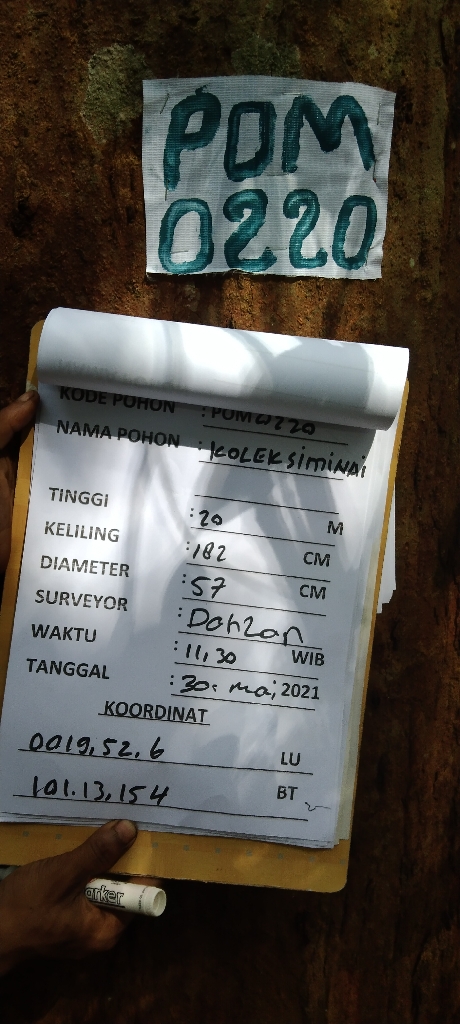 POM
0220
KODE POHON : POM0220
NAMA POHON : KOLEKSIMINAI
TINGGI : 20 M
KELILING : 182 CM
DIAMETER : 57 CM
SURVEYOR : Dahlan
WAKTU : 11,30 WIB
TANGGAL : 30. mai, 2021
KOORDINAT
0019,52,6 LU
101.13,154 BT
arker